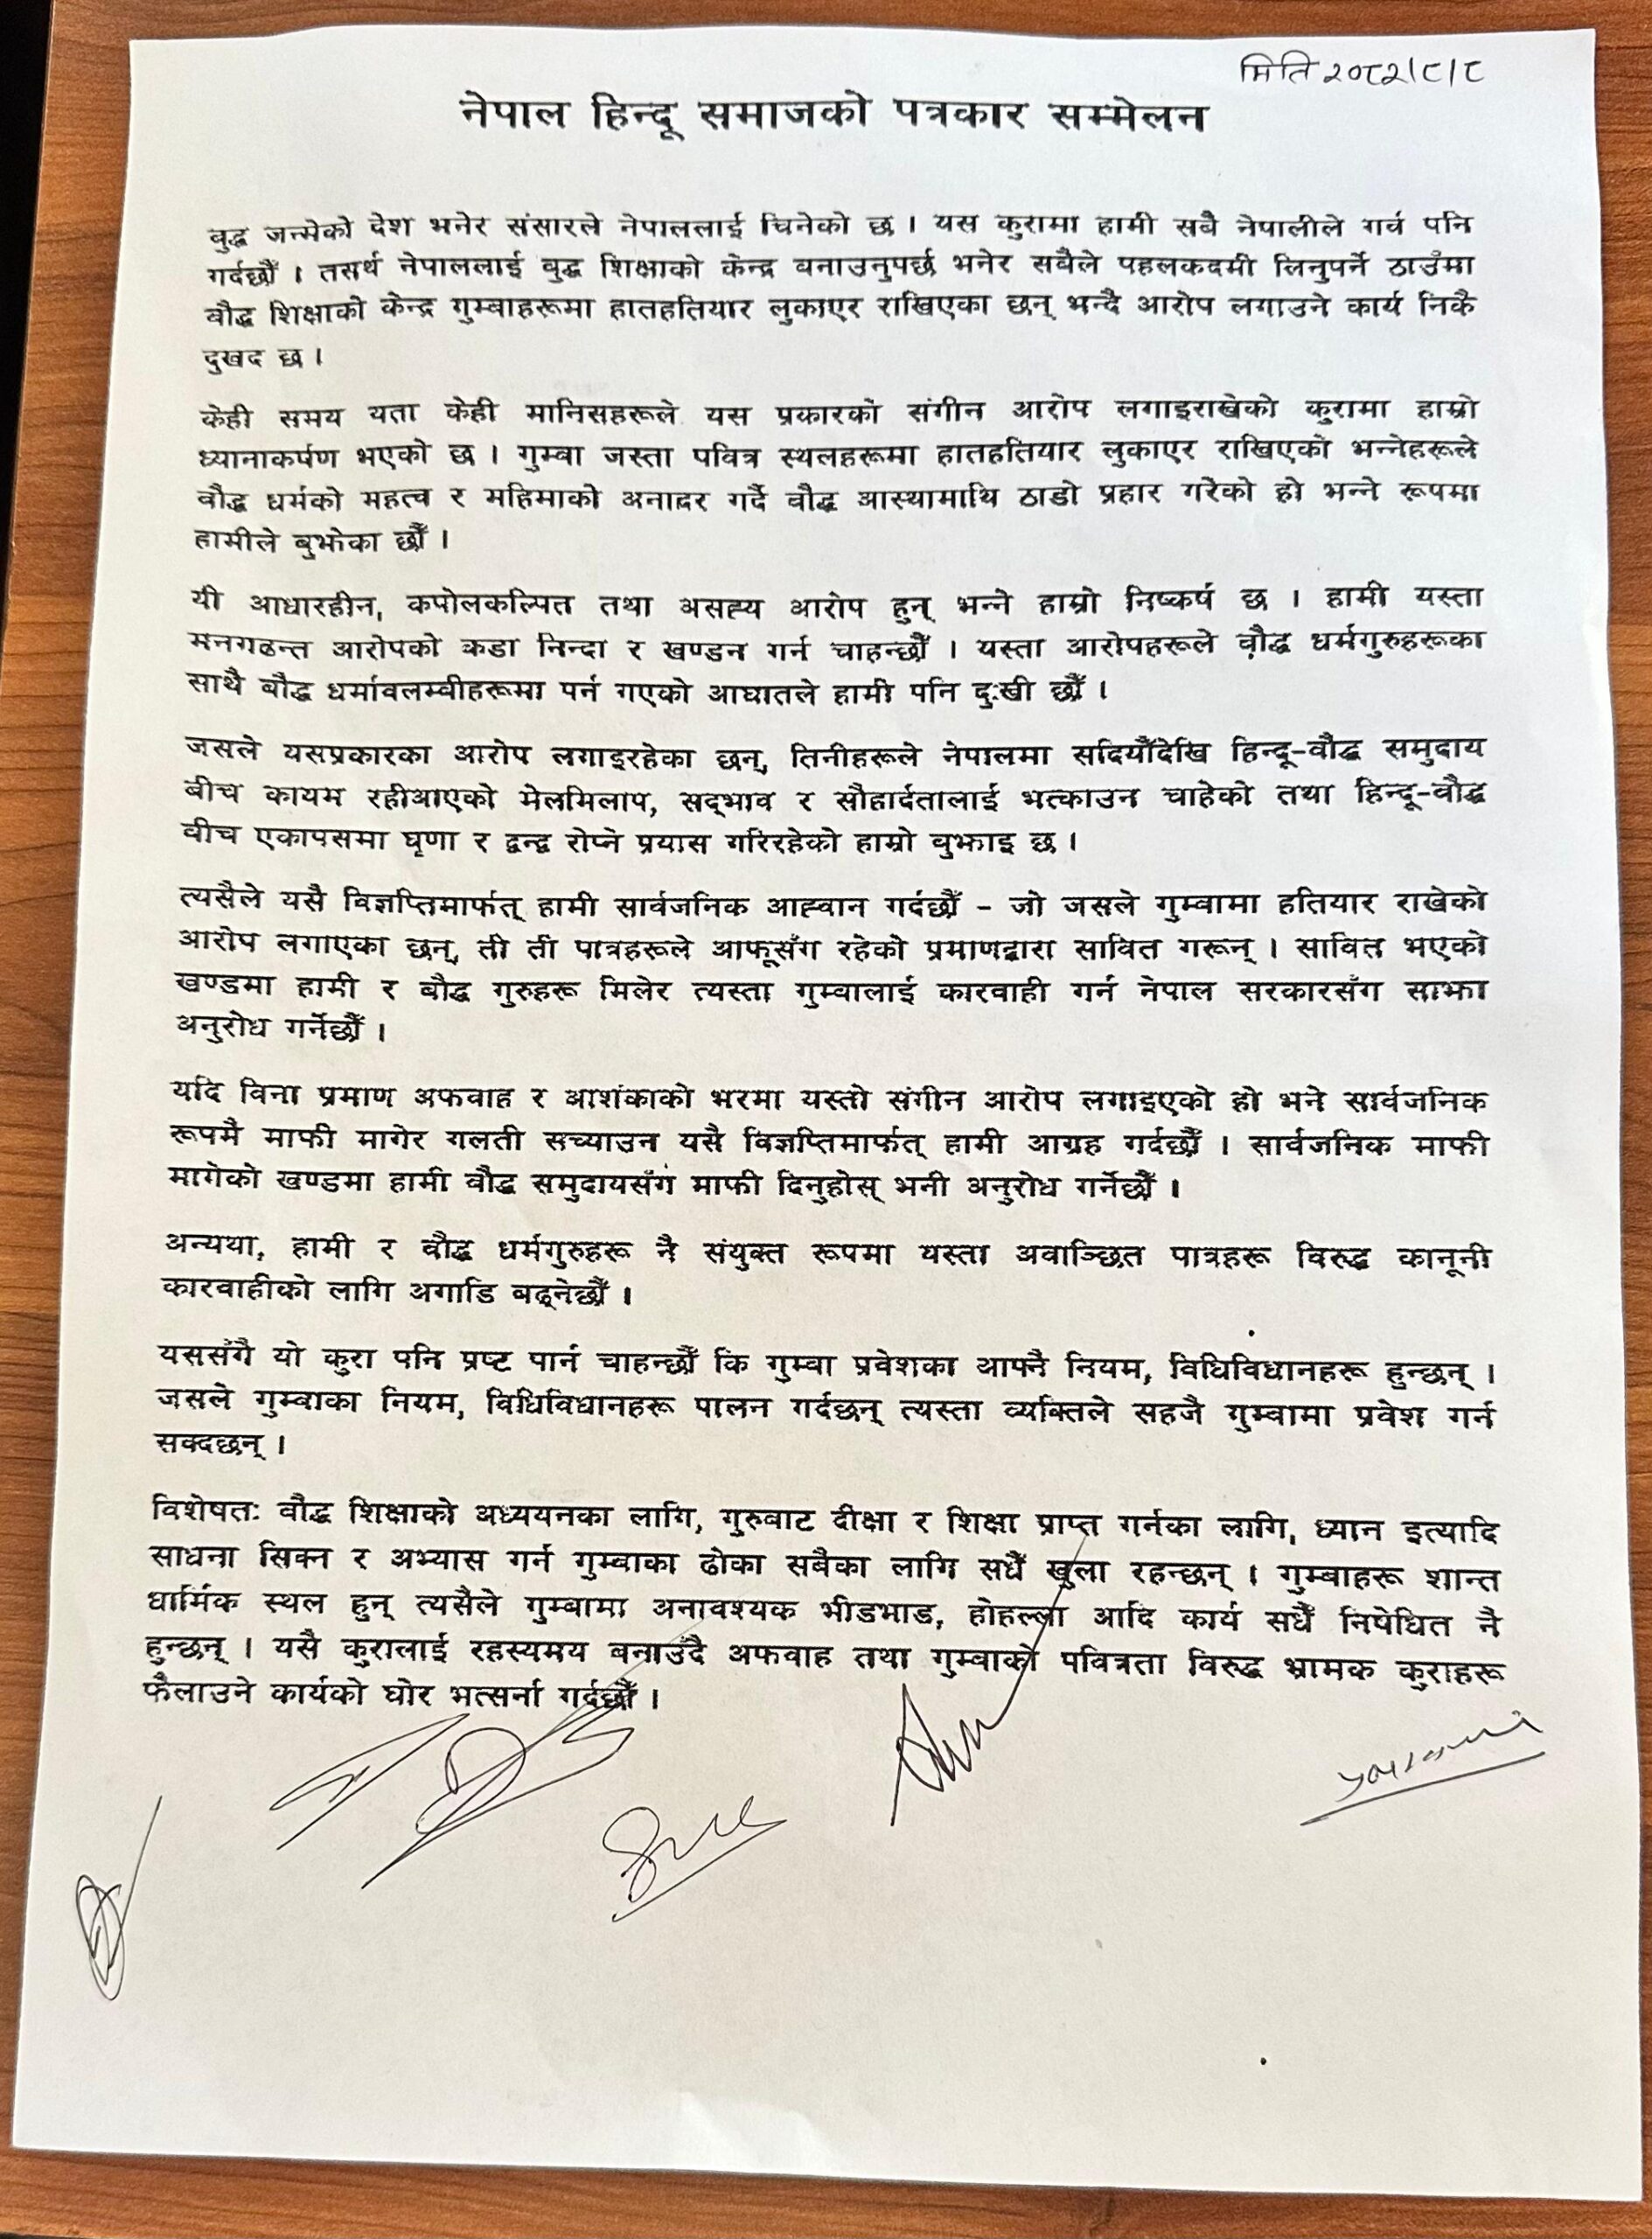 मिति २०८२।८।८
नेपाल हिन्दू समाजको पत्रकार सम्मेलन
बुद्ध जन्मेको देश भनेर संसारले नेपाललाई चिनेको छ । यस कुरामा हामी सबै नेपालीले गर्व पनि
गर्दछौं । तसर्थ नेपाललाई बुद्ध शिक्षाको केन्द्र बनाउनुपर्छ भनेर सबैले पहलकदमी लिनुपर्ने ठाउँमा
बौद्ध शिक्षाको केन्द्र गुम्बाहरूमा हातहतियार लुकाएर राखिएका छन् भन्दै आरोप लगाउने कार्य निकै
दुखद छ ।
केही समय यता केही मानिसहरूले यस प्रकारको संगीन आरोप लगाइराखेको कुरामा हाम्रो
ध्यानाकर्षण भएको छ । गुम्बा जस्ता पवित्र स्थलहरूमा हातहतियार लुकाएर राखिएको भन्नेहरूले
बौद्ध धर्मको महत्व र महिमाको अनादर गर्दै बौद्ध आस्थामाथि ठाडो प्रहार गरेको हो भन्ने रूपमा
हामीले बुझेका छौं ।
यी आधारहीन, कपोलकल्पित तथा असह्य आरोप हुन् भन्ने हाम्रो निष्कर्ष छ । हामी यस्ता
मनगढन्त आरोपको कडा निन्दा र खण्डन गर्न चाहन्छौं । यस्ता आरोपहरूले बौद्ध धर्मगुरुहरूका
साथै बौद्ध धर्मावलम्बीहरूमा पर्न गएको आघातले हामी पनि दुःखी छौं ।
जसले यसप्रकारका आरोप लगाइरहेका छन्, तिनीहरूले नेपालमा सदियौंदेखि हिन्दू-बौद्ध समुदाय
बीच कायम रहीआएको मेलमिलाप, सद्‌भाव र सौहार्दतालाई भत्काउन चाहेको तथा हिन्दू-बौद्ध
बीच एकापसमा घृणा र द्वन्द्व रोप्ने प्रयास गरिरहेको हाम्रो बुझाइ छ ।
त्यसैले यसै विज्ञप्तिमार्फत् हामी सार्वजनिक आह्वान गर्दछौं - जो जसले गुम्बामा हतियार राखेको
आरोप लगाएका छन्, ती ती पात्रहरूले आफूसँग रहेको प्रमाणद्वारा साबित गरून् । साबित भएको
खण्डमा हामी र बौद्ध गुरुहरू मिलेर त्यस्ता गुम्बालाई कारवाही गर्न नेपाल सरकारसँग साझा
अनुरोध गर्नेछौं ।
यदि विना प्रमाण अफवाह र आशंकाको भरमा यस्तो संगीन आरोप लगाइएको हो भने सार्वजनिक
रूपमै माफी मागेर गलती सच्याउन यसै विज्ञप्तिमार्फत् हामी आग्रह गर्दछौं । सार्वजनिक माफी
मागेको खण्डमा हामी बौद्ध समुदायसँग माफी दिनुहोस् भनी अनुरोध गर्नेछौं ।
अन्यथा, हामी र बौद्ध धर्मगुरुहरू नै संयुक्त रूपमा यस्ता अवाञ्छित पात्रहरू विरुद्ध कानूनी
कारवाहीको लागि अगाडि बढ्नेछौं ।
यससँगै यो कुरा पनि प्रष्ट पार्न चाहन्छौं कि गुम्बा प्रवेशका आफ्नै नियम, विधिविधानहरू हुन्छन् ।
जसले गुम्बाका नियम, विधिविधानहरू पालन गर्दछन् त्यस्ता व्यक्तिले सहजै गुम्बामा प्रवेश गर्न
सक्दछन् ।
विशेषतः बौद्ध शिक्षाको अध्ययनका लागि, गुरुबाट दीक्षा र शिक्षा प्राप्त गर्नका लागि, ध्यान इत्यादि
साधना सिक्न र अभ्यास गर्न गुम्बाका ढोका सबैका लागि सधैं खुला रहन्छन् । गुम्बाहरू शान्त
धार्मिक स्थल हुन् त्यसैले गुम्बामा अनावश्यक भीडभाड, होहल्ला आदि कार्य सधैं निषेधित नै
हुन्छन् । यसै कुरालाई रहस्यमय बनाउँदै अफवाह तथा गुम्बाको पवित्रता विरुद्ध भ्रामक कुराहरू
फैलाउने कार्यको घोर भत्सर्ना गर्दछौं ।